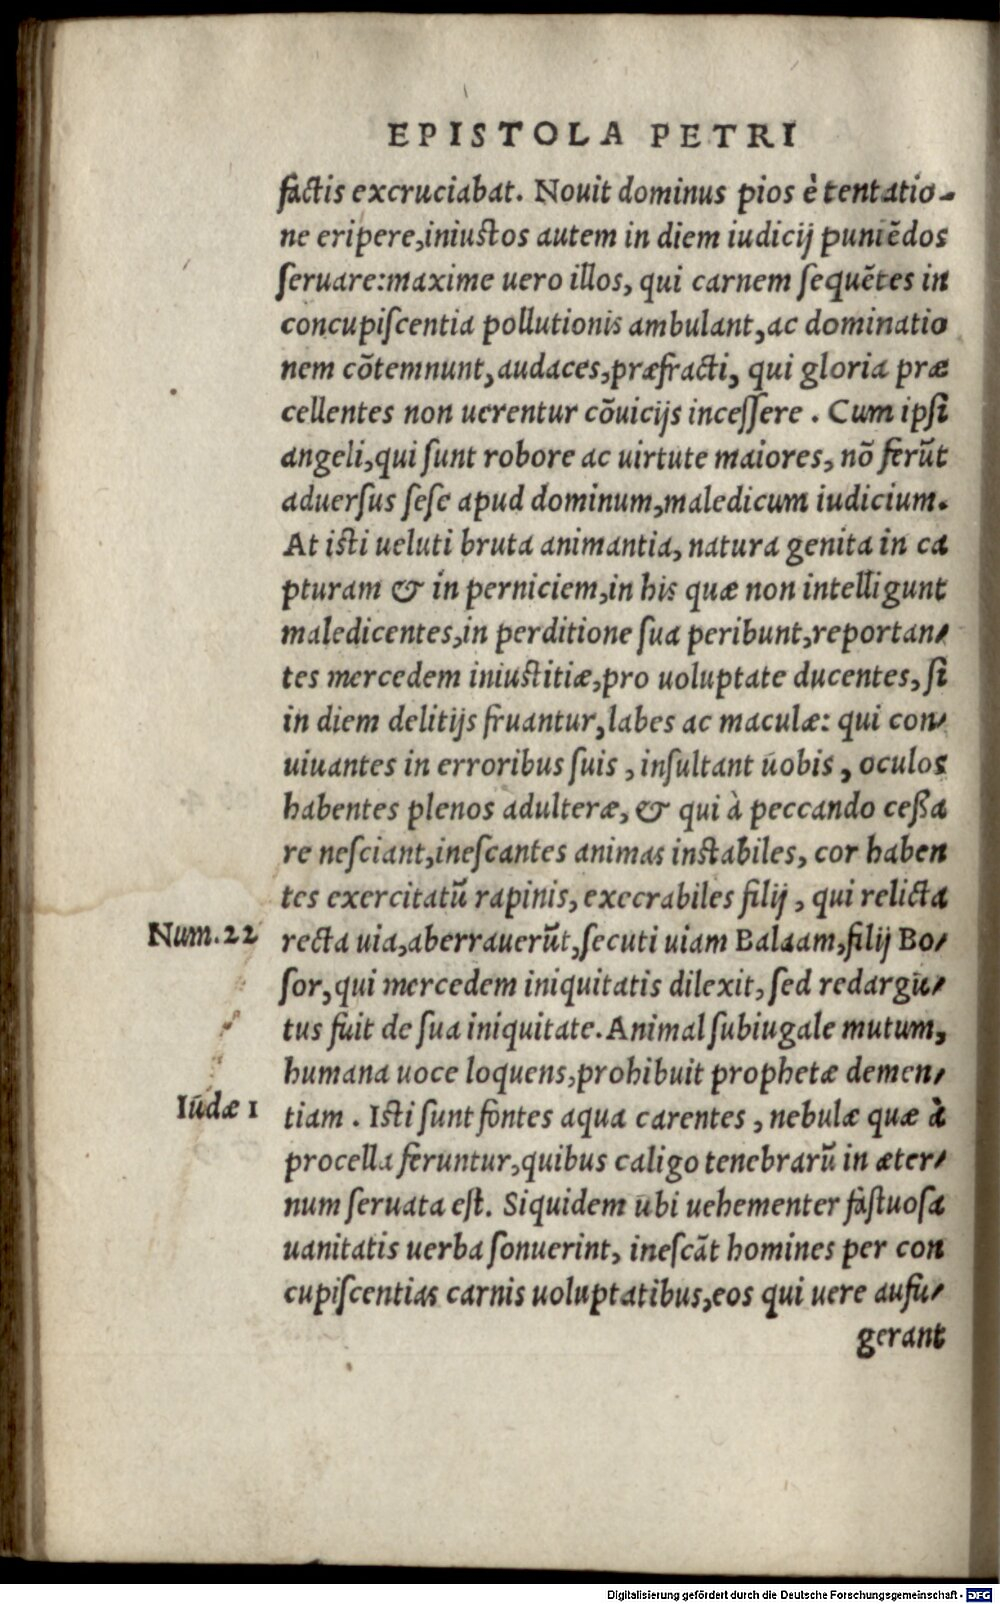 EPISTOLA PETRI
factis excruciabat. Nouit dominus pios è tentatio-
ne eripere,iniustos autem in diem iudicij puniẽdos
ſeruare:maxime uero illos, qui carnem ſequẽtes in
concupiſcentia pollutionis ambulant,ac dominatio
nem cõtemnunt,audaces,præfracti, qui gloria præ
cellentes non uerentur cõuicijs inceſſere . Cum ipſi
angeli,qui ſunt robore ac uirtute maiores, nõ ferũt
aduerſus ſeſe apud dominum,maledicum iudicium.
At iſti ueluti bruta animantia, natura genita in ca
pturam & in perniciem,in his quæ non intelligunt
maledicentes,in perditione ſua peribunt,reportan-
tes mercedem iniuſtitiæ,pro uoluptate ducentes, ſi
in diem delitijs fruantur,labes ac maculæ: qui con-
uiuantes in erroribus ſuis , inſultant uobis , oculos
habentes plenos adulteræ, & qui à peccando ceßa
re neſciant,ineſcantes animas inſtabiles, cor haben
tes exercitatũ rapinis, execrabiles filij , qui relicta
Num.22 recta uia,aberrauerũt,ſecuti uiam Balaam,filij Bo-
ſor,qui mercedem iniquitatis dilexit, ſed redargu-
tus fuit de ſua iniquitate. Animal ſubiugale mutum,
humana uoce loquens,prohibuit prophetæ demen-
Iudæ 1 tiam . Iſti ſunt fontes aqua carentes , nebulæ quæ à
procella feruntur,quibus caligo tenebrarũ in æter-
num ſeruata eſt. Siquidem ubi uehementer faſtuoſa
uanitatis uerba ſonuerint, ineſcãt homines per con
cupiſcentias carnis uoluptatibus,eos qui uere aufu-
gerant
Digitalisierung gefördert durch die Deutsche Forschungsgemeinschaft - DFG